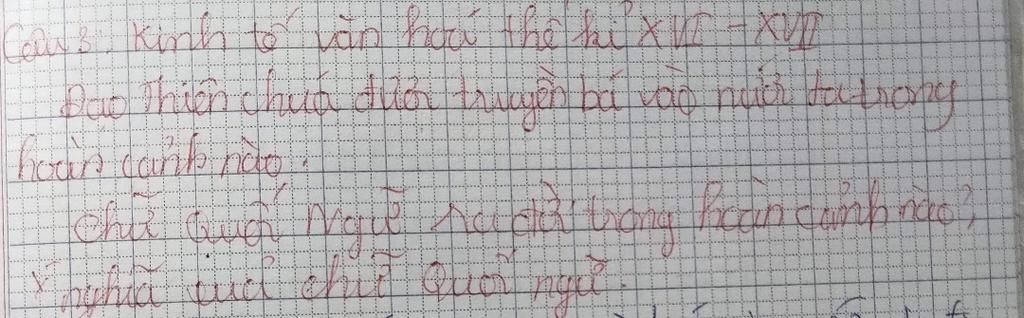 Câu 3. Kinh tế văn hoá thế kỉ XVI - XVII
Đạo Thiên chúa được truyền bá vào nước ta trong
hoàn cảnh nào.
chữ Quốc Ngữ ra đời trong hoàn cảnh nào?
Ý nghĩa của chữ Quốc ngữ.